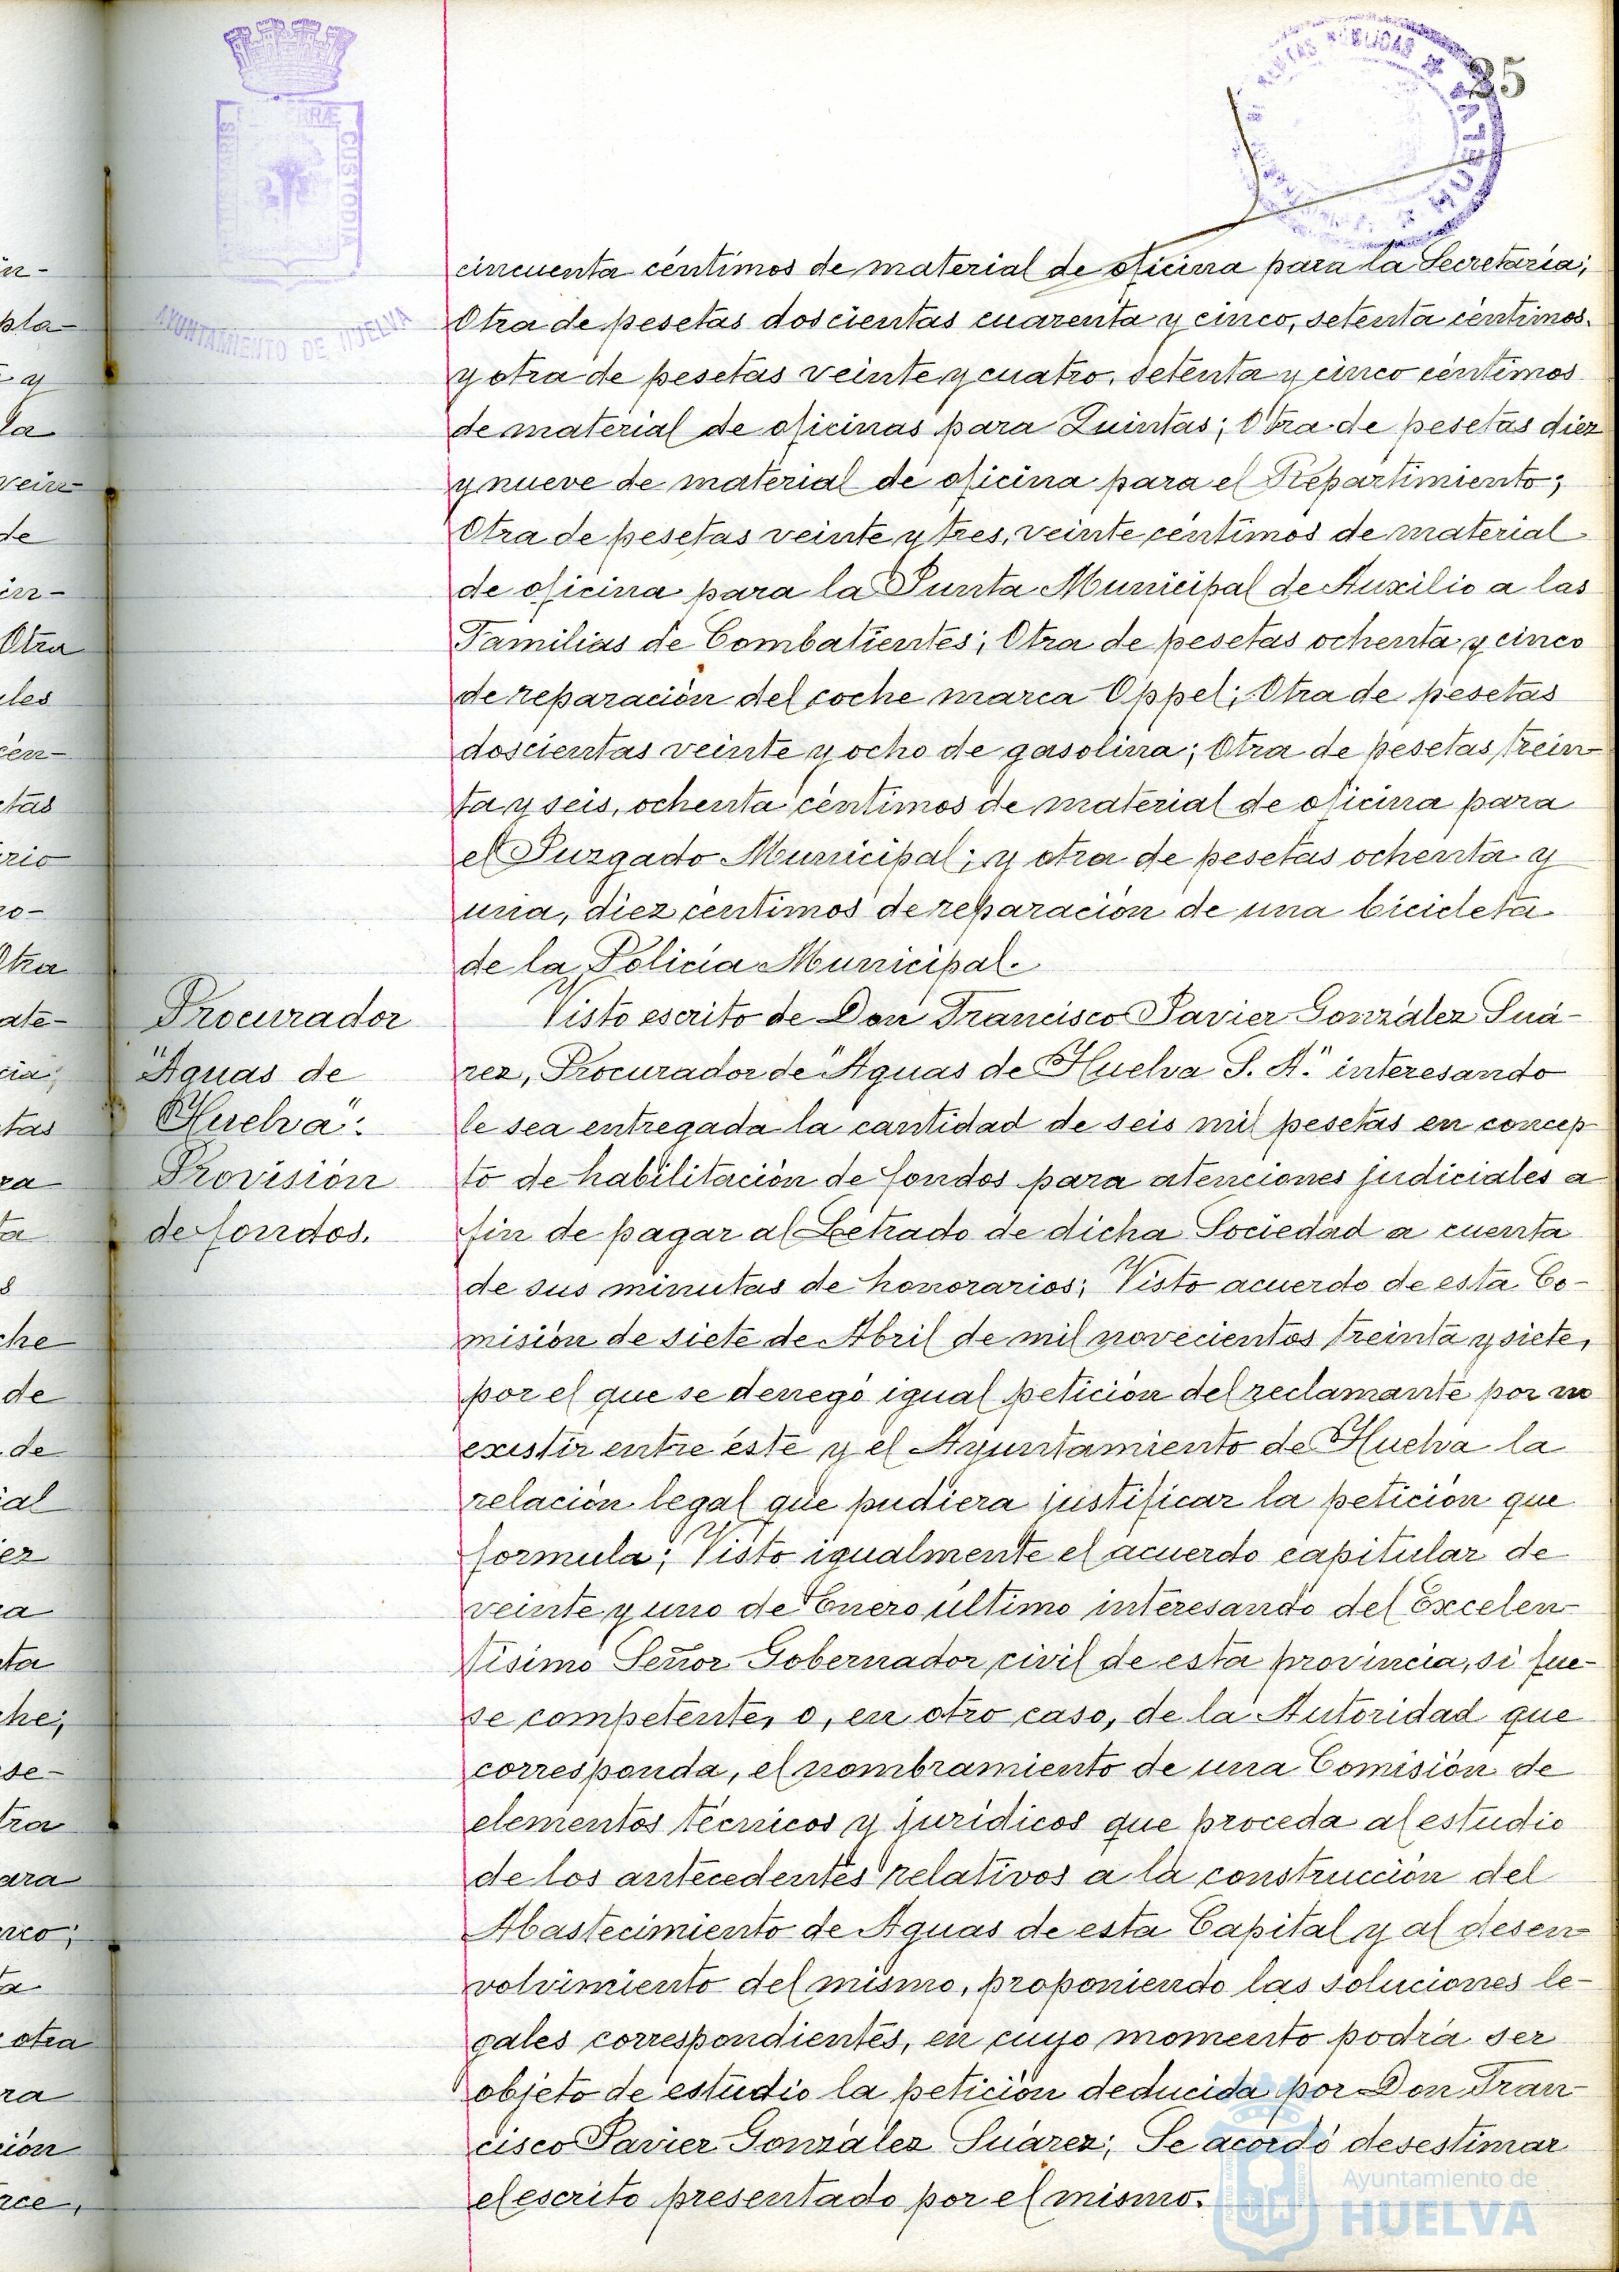 35
CUSTODIA
AYUNTAMIENTO DE HUELVA
cincuenta céntimos de material de oficina para la Secretaría;
Otra de pesetas doscientas cuarenta y cinco, setenta céntimos.
y otra de pesetas veinte y cuatro, setenta y cinco céntimos
de material de oficinas para Quintas; Otra de pesetas diez
y nueve de material de oficina para el Repartimiento;
Otra de pesetas veinte y tres, veinte céntimos de material
de oficina para la Junta Municipal de Auxilio a las
Familias de Combatientes; Otra de pesetas ochenta y cinco
de reparación del coche marca Oppel; Otra de pesetas
doscientas veinte y ocho de gasolina; Otra de pesetas trein-
ta y seis, ochenta céntimos de material de oficina para
el Juzgado Municipal; y otra de pesetas ochenta y
una, diez céntimos de reparación de una bicicleta
de la Policía Municipal.
Procurador
"Aguas de
Huelva":
Provisión
de fondos.
Visto escrito de Don Francisco Javier González Suá-
rez, Procurador de "Aguas de Huelva S. A." interesando
le sea entregada la cantidad de seis mil pesetas en concep-
to de habilitación de fondos para atenciones judiciales a
fin de pagar al Letrado de dicha Sociedad a cuenta
de sus minutas de honorarios; Visto acuerdo de esta Co-
misión de siete de Abril de mil novecientos treinta y siete,
por el que se denegó igual petición del reclamante por no
existir entre éste y el Ayuntamiento de Huelva la
relación legal que pudiera justificar la petición que
formula; Visto igualmente el acuerdo capitular de
veinte y uno de Enero último interesando del Excelen-
tísimo Señor Gobernador civil de esta provincia, si fue-
se competente, o, en otro caso, de la Autoridad que
corresponda, el nombramiento de una Comisión de
elementos técnicos y jurídicos que proceda al estudio
de los antecedentes relativos a la construcción del
Abastecimiento de Aguas de esta Capital y al desen-
volvimiento del mismo, proponiendo las soluciones le-
gales correspondientes, en cuyo momento podrá ser
objeto de estudio la petición deducida por Don Fran-
cisco Javier González Suárez; Se acordó desestimar
el escrito presentado por el mismo.
Ayuntamiento de
HUELVA